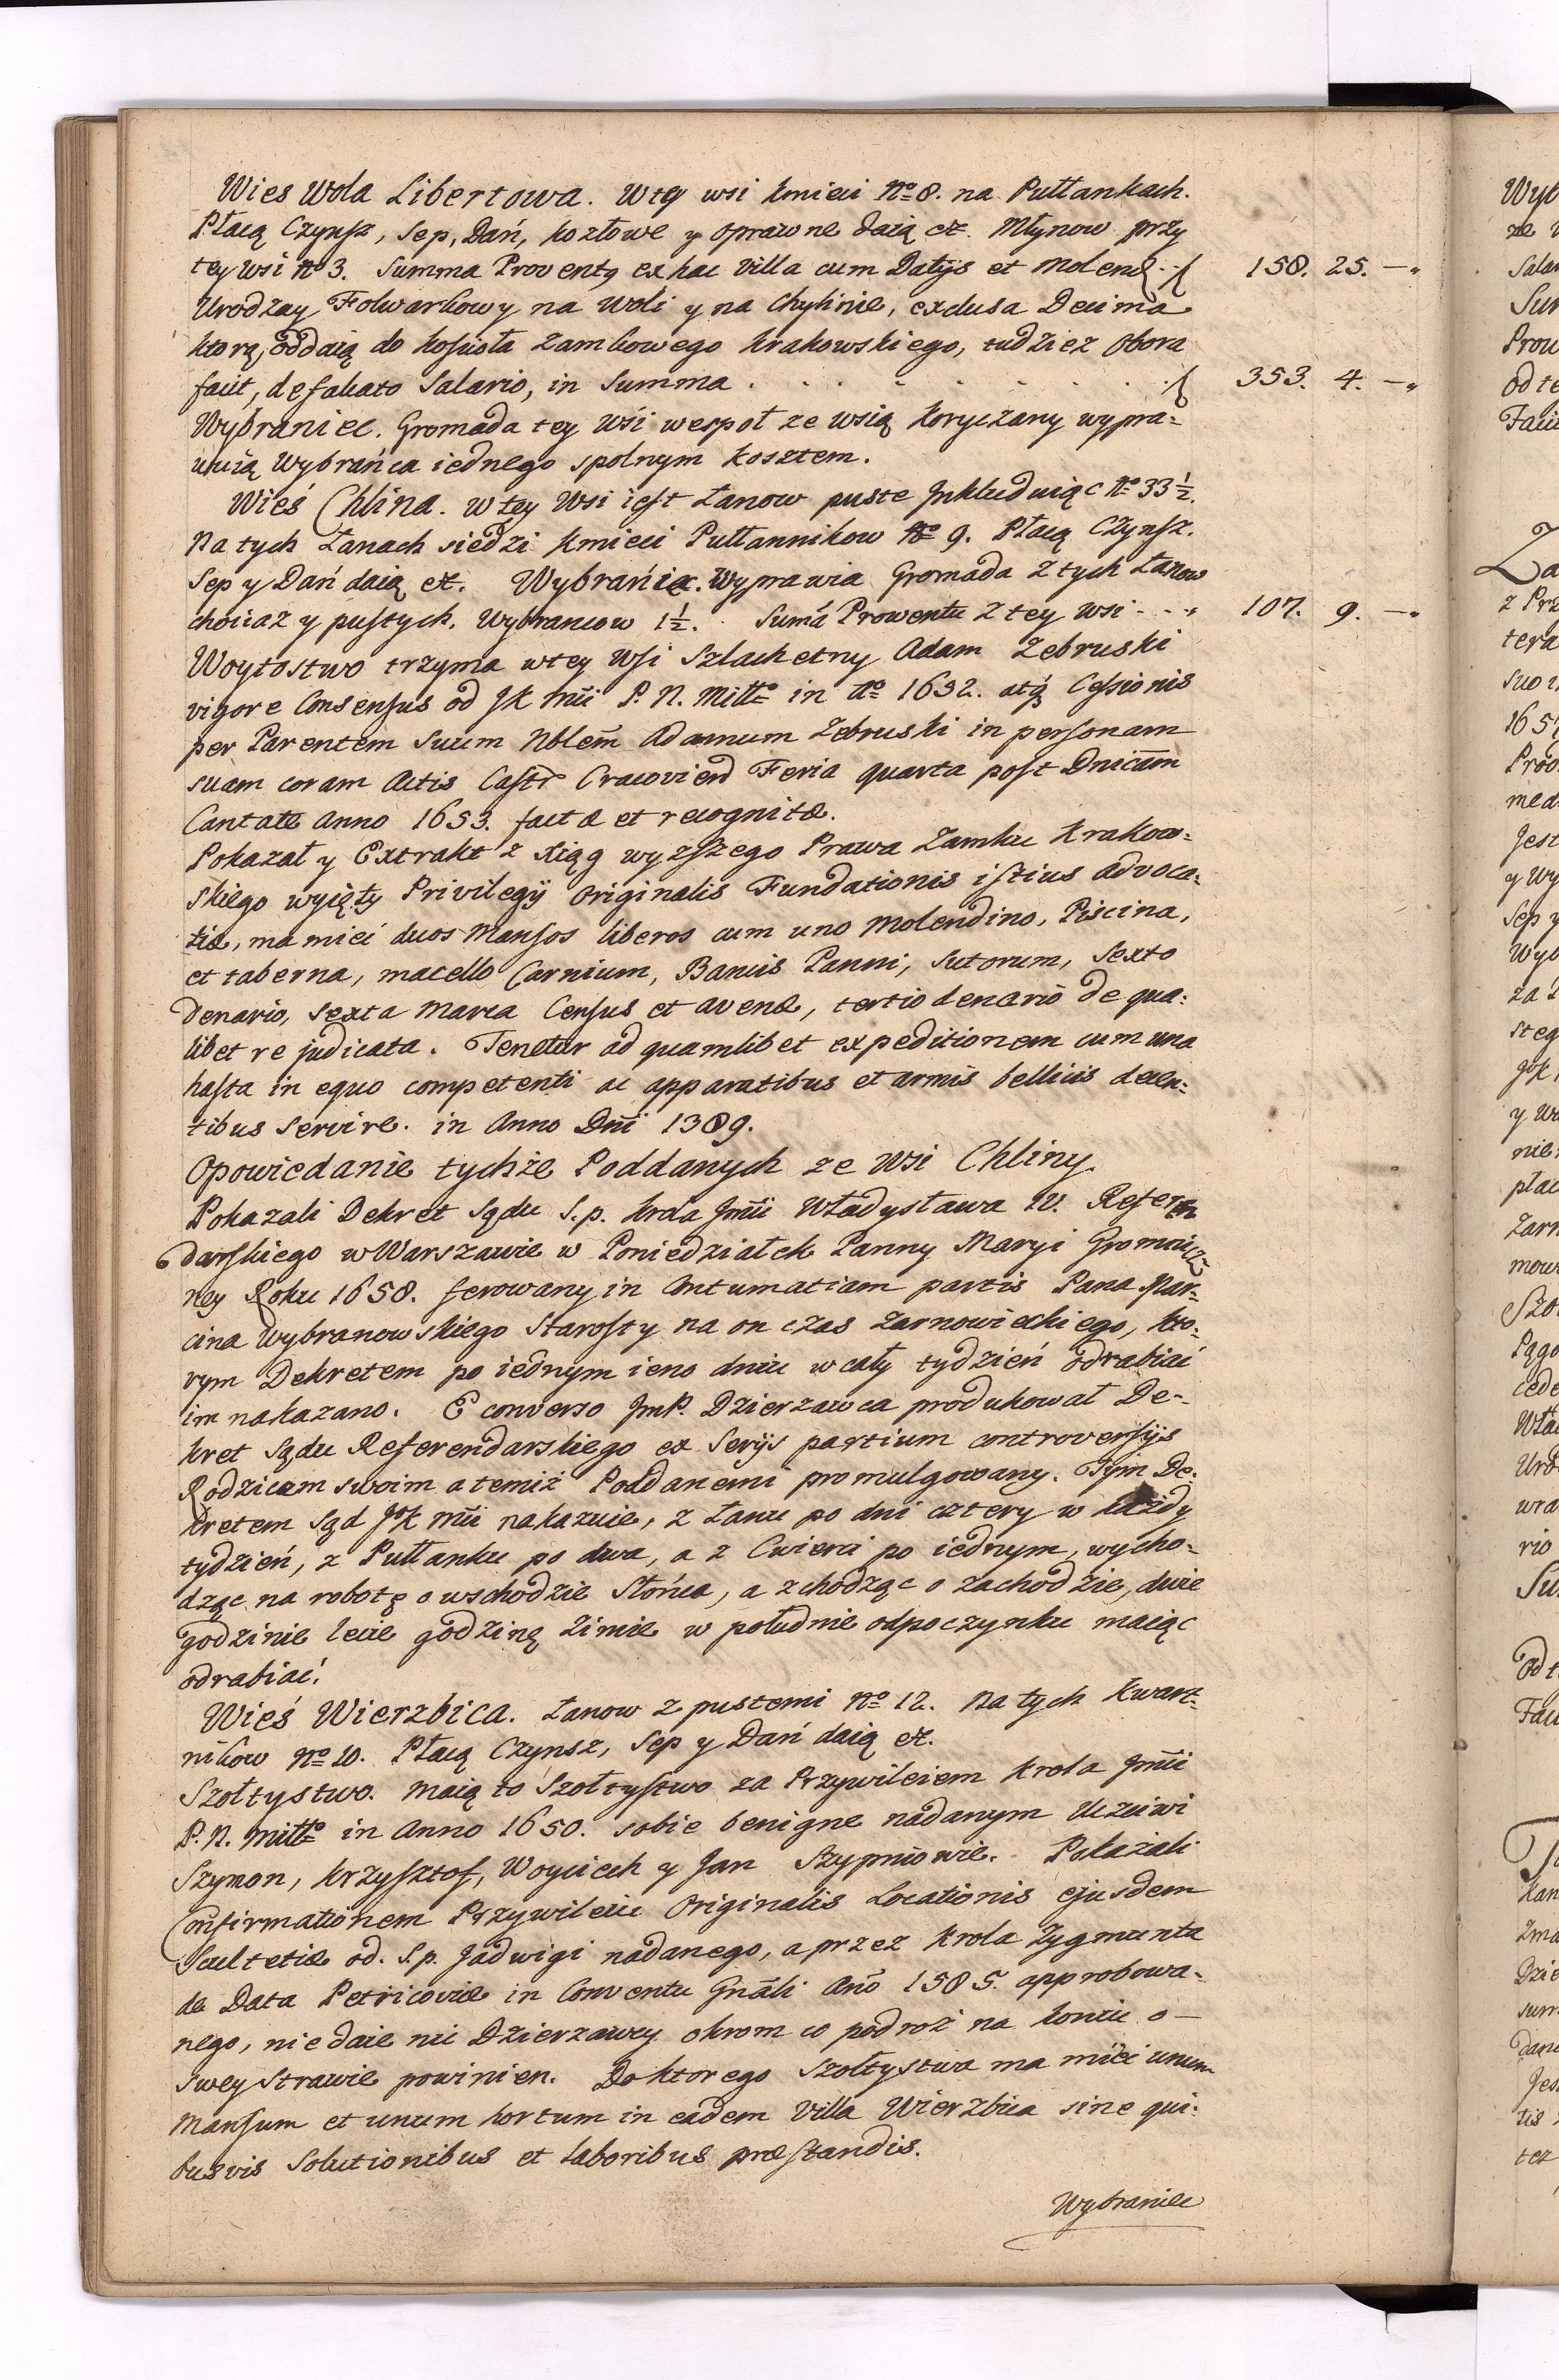 Wies Wola Libertowa. Wtey wsi kmieci No 8. na Pułłankach.
Płacą Czynsz, Sep, Dań, kozłowe y oprawne daią etc. Młynow przy
tey wsi No 3. Summa Proventg ex hac Villa cum Datijs et Molend. f 158. 25. —
Urodzay Folwarkowy na Woli y na Chylinie, exclusa Decima
ktorą oddaią do kościoła Zamkowego krakowskiego, tudziez Obora
facit, defalcato Salario, in Summa . . . . . . . f 353. 4. —
Wybraniec. Gromada tey Wśi wespoł ze wsią Koryczany wypra=
wuią Wybrańca iednego spolnym kosztem.
Wieś Chlina. w tey Wsi iest Łanow puste Jnkluduiąc No 33 1/2.
Na tych Łanach siedzi kmieci Pułłannikow No 9. Płacą Czynsz.
Sep y Dań daią etc. Wybrańiec. Wyprawia Gromada z tych Łanow
chociaz y pustych, Wybrancow 1 1/2. Sumá Prowentu z tey Wsi - - " 107. 9. —
Woytostwo trzyma wtey Wsi Szlachetny Adam Zebruski
vigore Consensus od Jk Mći P. N. Miłło in Ao 1632. atq Cessionis
per Parentem Suum Nblem Adamum Zebruski in personam
suam coram Actis Castr Cracovien Feria quarta post Dnicam
Cantate Anno 1653. factæ et recognitæ.
Pokazał y Extrakt z Xiąg wyzszego Prawa Zamku Krakow=
skiego wyięty Privilegij Originalis Fundationis istius Advoca=
tiæ, ma mieć duos Mansos liberos cum uno Molendino, Piscina,
et taberna, macello Carnium, Bancis Panni, Sutorum, Sexto
Denario, Sexta Marca Census et Avenæ, tertio denario de qua=
libet re judicata. Tenetur ad quamlibet expeditionem cum una
hasta in equo competenti ac apparatibus et armis bellicis decen=
tibus Servire. in Anno Dni 1389.
Opowiedanie tychże Poddanych ze Wsi Chliny
Pokazali Dekret Sądu S. p. Krola Jmći Władysława IV. Referen
darskiego w Warszawie w Poniedziałek Panny Maryi Gromnicz
ney Roku 1658. ferowany in Contumatiam partis Pana Mar=
cina Wybranowskiego Starosty na on czas Zarnowieckiego, kto=
rym Dekretem po iednym ieno dniu w cały tydzień odrabiać
im nakazano. E converso JmP. Dzierzawca produkował De=
kret Sądu Referendarskiego ex Serijs partium controversijs
Rodzicom swoim a temiż Poddanemi promulgowany. Tym De=
kretem Sąd Jk Mći nakazuie, z Łanu po dni cztery w każdy
tydzień, z Pułłanku po dwa, a z Cwierci po iednym, wycho=
dząc na robotę o wschodzie Słońca, a zchodząc o zachodzie, dwie
godzinie lecie godzinę Zimie w południe odpoczynku maiąc
odrabiać.
Wieś Wierzbica. Łanow z pustemi No 12. Na tych Kwart=
nikow No 10. Płacą Czynsz, Sep y Dań daią etc.
Szołtystwo. Maią to Szołtystwo za Przywileiem Krola Jmći
P. N. Miłło in Anno 1650. sobie benigne nadanym Uczciwi
Szymon, Krzysztof, Woyciech y Jan Szypniowie. Pokazali
Confirmationem Przywileiu Originalis Locationis ejusdem
Scultetiæ od. S. p. Jadwigi nadanego, a przez Krola Zygmunta
de Data Petricoviæ in Conventu Gnali Ano 1505. approbowa=
nego, nie daie nic Dzierzawcy okrom co podroż na koniu o—
swey Strawie powinien. Do ktorego Szołtystwa ma mieć unum
Mansum et unum hortum in eadem Villa Wierzbica sine qui=
busvis Solutionibus et Laboribus præstandis.
Wybraniec